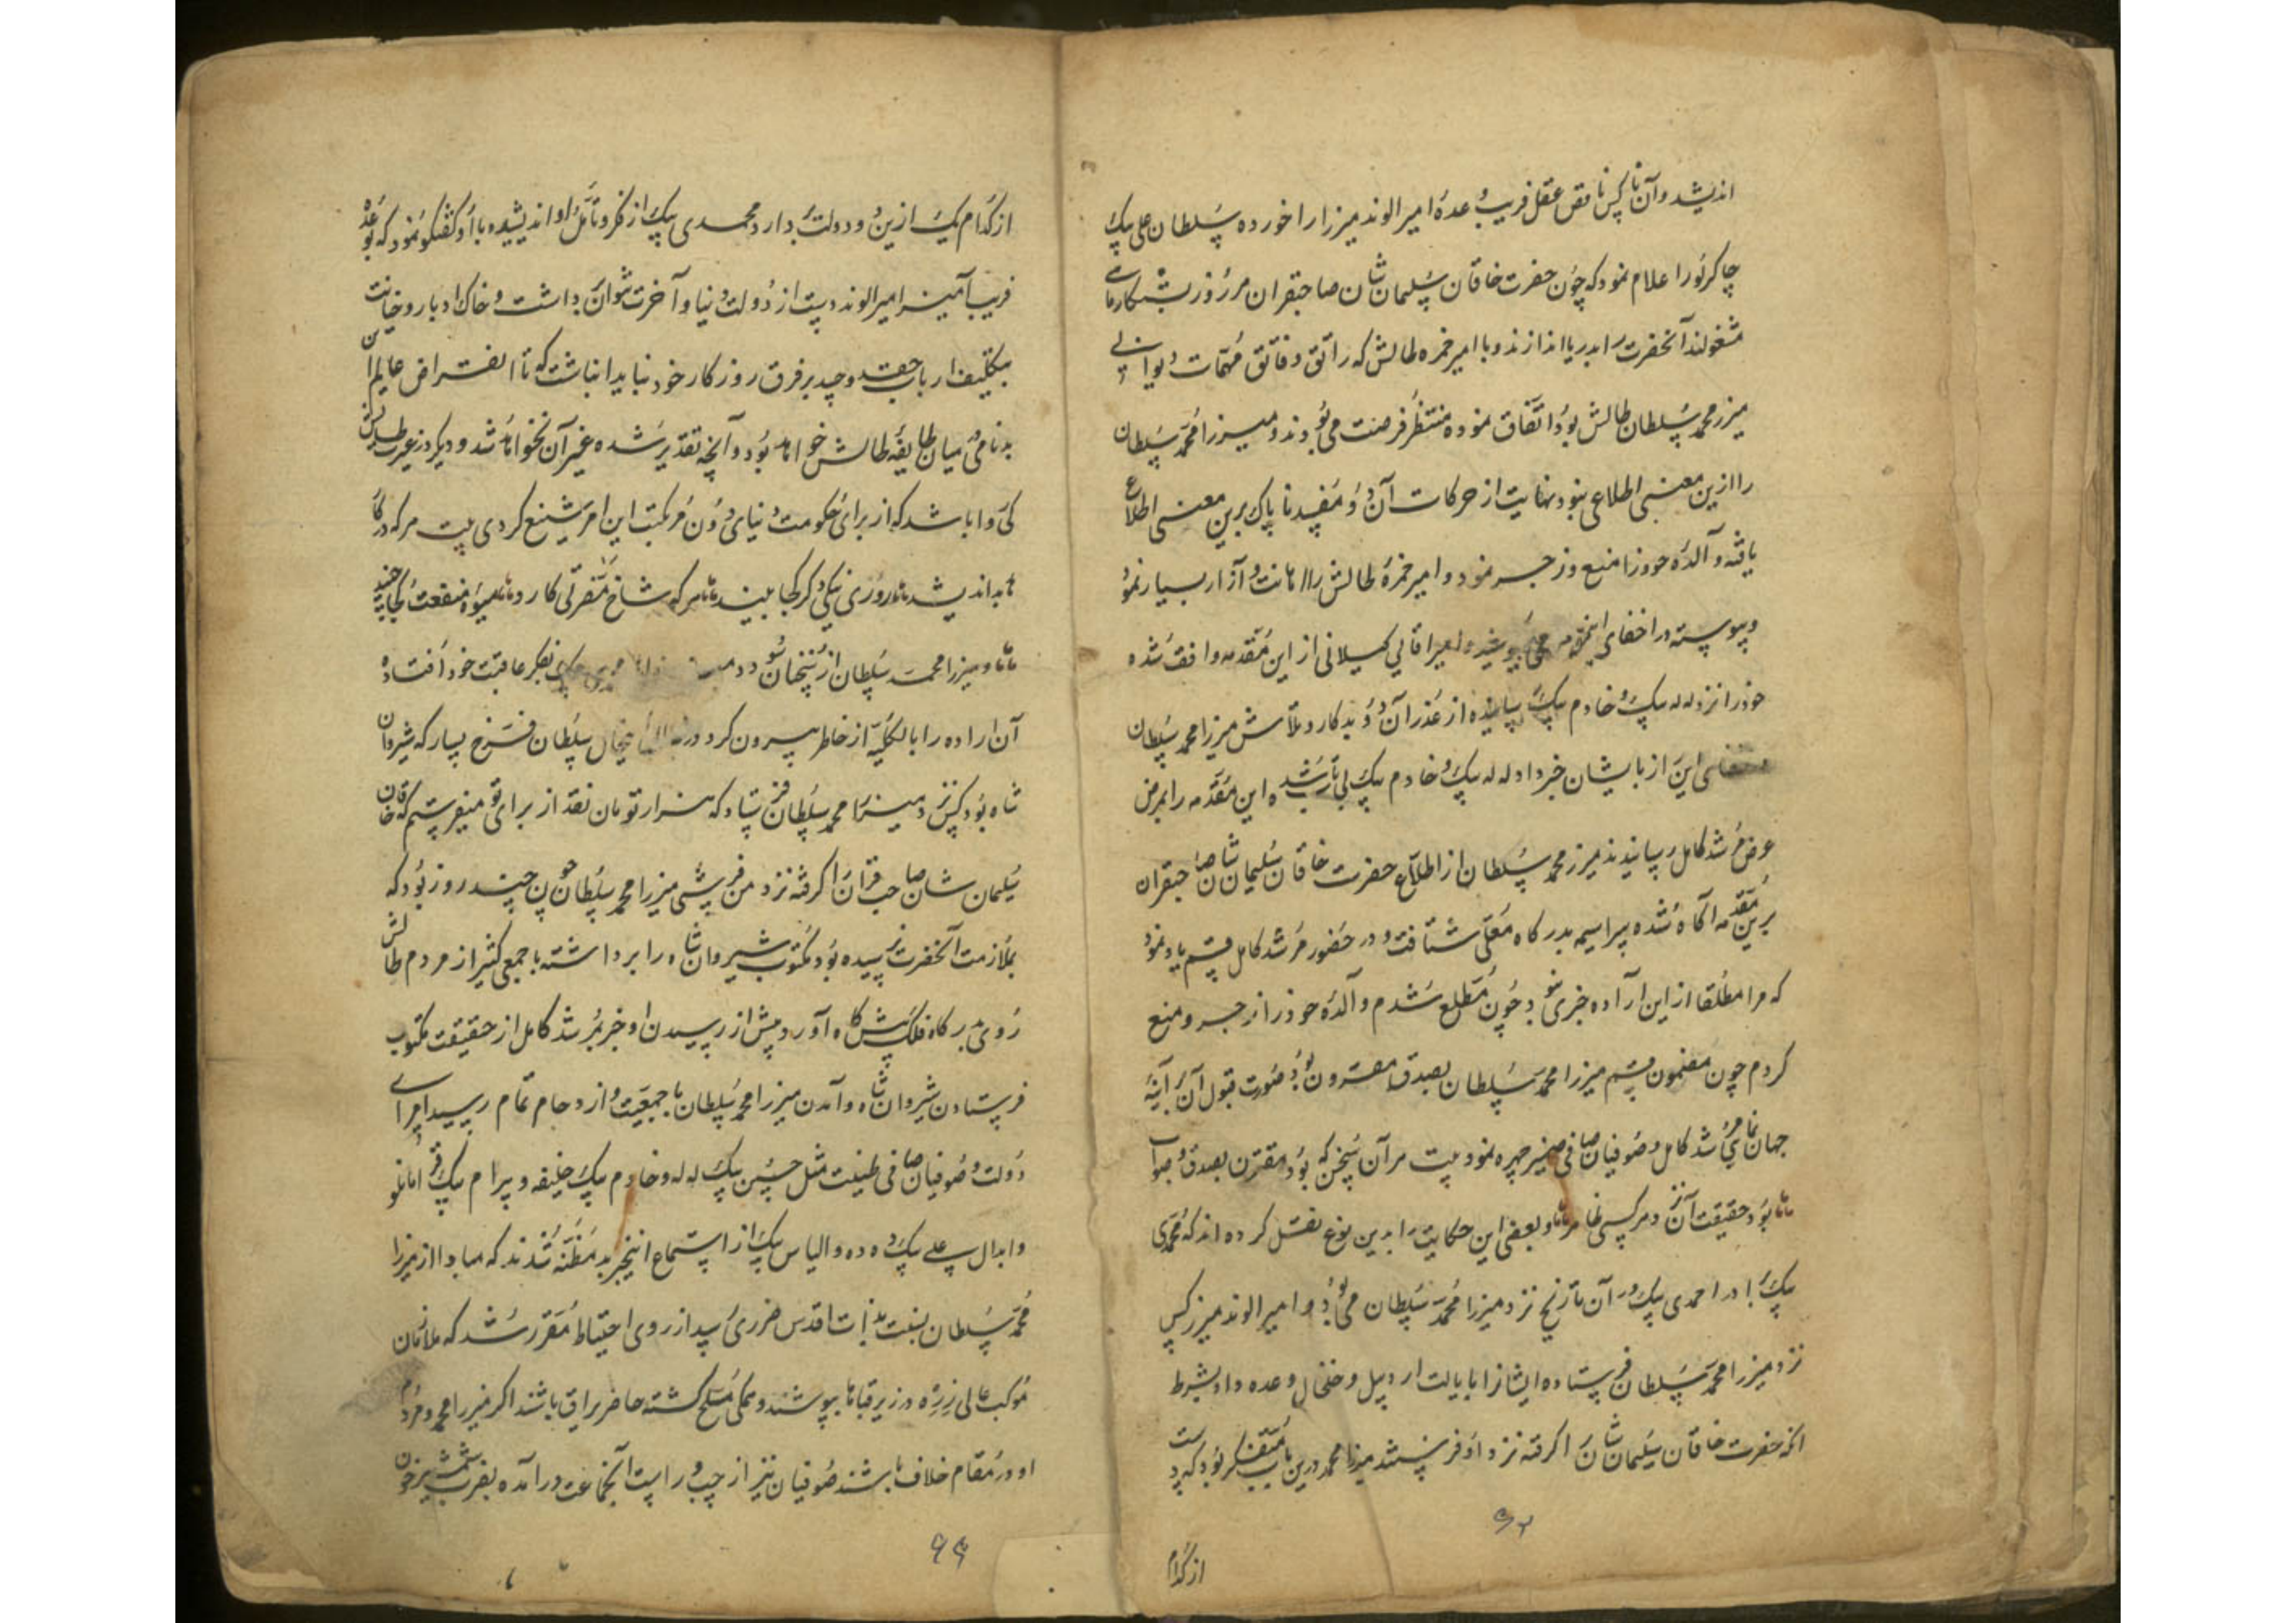 اندیشد و آن ناکس ناقص عقل فریب وعدهٔ امیر الوند میرزا را خورده سلطان علی بیک
چاکرلو را اعلام نمود که چون حضرت خاقان سلیمان شان صاحبقران هر روز بشکار ماهی
مشغولند آنحضرت را بدریا اندازند و با امیر حمزه طالش که راتق و فاتق مهمات دیوانی
میرزا محمد سلطان طالش بود اتفاق نموده منتظر فرصت می بودند و میرزا محمد سلطان
را ازین معنی اطلاعی نبود نهایت از حرکات آن دو مفسد ناپاک برین معنی اطلاع
یافته و آلدهٔ خود را منع و زجر نمود و امیر حمزهٔ طالش را اهانت و آزار بسیار نمود
و پیوسته در اخفای اینمقدمه می کوشید امیراقالی کیلانی از این مقدمه واقف شده
خود را نزد لله بیک و خادم بیک رسانیده از غدر آن دو بدکار و تلاش میرزا محمد سلطان
این راز بایشان خبر داد لله بیک و خادم بیک بی تاب شده این مقدمه را بعرض
عرض مرشد کامل رسانیدند میرزا محمد سلطان از اطلاع حضرت خاقان سلیمان شان صاحبقران
برین مقدمه آکاه شده سراسیمه بدرکاه معلی شتافت و در حضور مرشد کامل قسم یاد نمود
که مرا مطلقا از این اراده خبری نبود چون مطلع شدم و آلدهٔ خود را زجر و منع
کردم چون مضمون قسم میرزا محمد سلطان بصدق مقرون بود صورت قبول آن در آینهٔ
جهان نمای مرشد کامل و صوفیان صافی ضمیر چهره نمود بیت هر آن سخن که بود مقترن بصدق و صواب
بود حقیقت آن نزد هر کسی ظاهر و بعضی این حکایت را بدین نوع نقل کرده اند که محمدی
بیک برادر احمدی بیک در آن تاریخ نزد میرزا محمد سلطان می بود و امیر الوند میرزا کس
نزد میرزا محمد سلطان فرستاده ایشانرا بایالت اردبیل و خلخال وعده داد بشرط
آنکه حضرت خاقان سلیمان شان را کرفته نزد او فرستند میرزا محمد درین باب متفکر بود که دست
۹۳
از کدام
از کدام یک ازین و دولت بدارد محمدی بیک از فکر و تأمل او اندیشیده با او کفتکو نمود که بوعده
فریب آمیز امیر الوند دست از دولت دنیا و آخرت نتوان داشت و خاک ادبار و خیانت
بتکلیف ارباب حقد و حسد بر فرق روزکار خود نباید انباشت که تا انقراض عالم این
بدنامی میان طایفهٔ طالش خواهد بود و آنچه تقدیر شده غیر آن نخواهد شد و دیکر در غیرت طالش
کی روا باشد که از برای حکومت دنیای دون مرتکب این امر شنیع کردی بیت هر که در کار
بد اندیشد روزی نیکی دکر کجا بیند هر که شاخ مضرتی کارد میوهٔ منفعت کجا چیند
و میرزا محمد سلطان از سخنان بفکر عاقبت خود افتاده
آن اراده را بالکلیه از خاطر بیرون کرد سلطان فرخ یسار که شیروان
شاه بود کس نزد میرزا محمد سلطان فرستاد که هزار تومان نقد از برای تو میفرستم که خاقان
سلیمان شان صاحب قران را کرفته نزد من فرستی میرزا محمد سلطان چون چند روز بود که
بملازمت آنحضرت رسیده بود مکتوب شیروان شاه را برداشته با جمعی کثیر از مردم طالش
روی بدرکاه فلک پیشکاه آورد پیش از رسیدن او خبر بمرشد کامل از حقیقت مکتوب
فرستادن شیروان شاه و آمدن میرزا محمد سلطان با جمعیت و ازدحام تمام رسید امرای
دولت و صوفیان صافی طینت مثل حسین بیک لله و خادم بیک خلیفه و بیرام بیک قرامانلو
و ابدال علی بیک دده و الیاس بیک از استماع اینخبر بد مظنه شدند که مبادا از میرزا
محمد سلطان نسبت بذات اقدس ضرری رسد از روی احتیاط مقرر شد که ملازمان
موکب عالی زره در زیر قباها بپوشند و همکی مسلح کشته حاضر یراق باشند اکر میرزا محمد و مردم
او در مقام خلاف باشند صوفیان نیز از چپ و راست آنجماعت درآمده بضرب شمشیر خون
۹۴